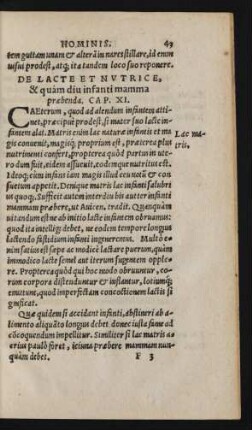 HOMINIS. 43
tem guttam unam & alteram in nares stillare, id enim
uisui prodest, atq; ita tandem loco suo reponere.
DE LACTE ET NVTRICE,
& quàm diu infanti mamma
præbenda. CAP. XI.
CAEterum, quod ad alendum infantem atti-
net, præcipuè prodest, si mater suo lacte in-
fantem alat. Matris enim lac naturæ infantis et ma
gis conuenit, magisq; proprium est, præterea plus
nutrimenti confert, propterea quòd partus in ute-
ro dum fuit, eidem assueuit, eodemque nutritus est.
Ideoq; cum infans iam magis illud ceu notũ & con
suetum appetit. Denique matris lac infanti salubri
us quoq;. Sufficit autem interdiu bis aut ter infanti
mammam præbere, ut Auicen. tradit. Quanquam ca
uendum est ne ab initio lacte infantem obruamus:
quod ita intelligi debet, ne eodem tempore longius
lactendo fastidium infanti ingeneremus. Multò e-
nim satius est sæpe ac modicè lactare partum, quàm
immodico lacte semel aut iterum sugentem opple-
re. Propterea quòd qui hoc modo obruuntur, eo-
rum corpora distenduntur & inflantur, lotiumq;
emittunt, quod imperfectam concoctionem lactis si
gnificat.
Quæ quidem si accidant infanti, abstineri ab a-
limento aliquãto longius debet donec iusta fame ad
cõcoquendum impellitur. Similiter si lac matris a-
crius paulò foret, ieiuna præbere mammam nun-
quàm debet. F 3
Lac ma-
tris.